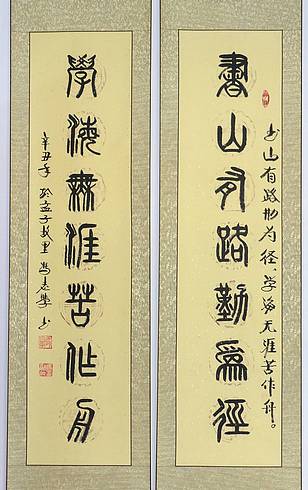 書山有路勤爲徑
书山有路勤为径、学海无涯苦作舟。
學海無涯苦作舟
辛丑年 於孟子故里 书